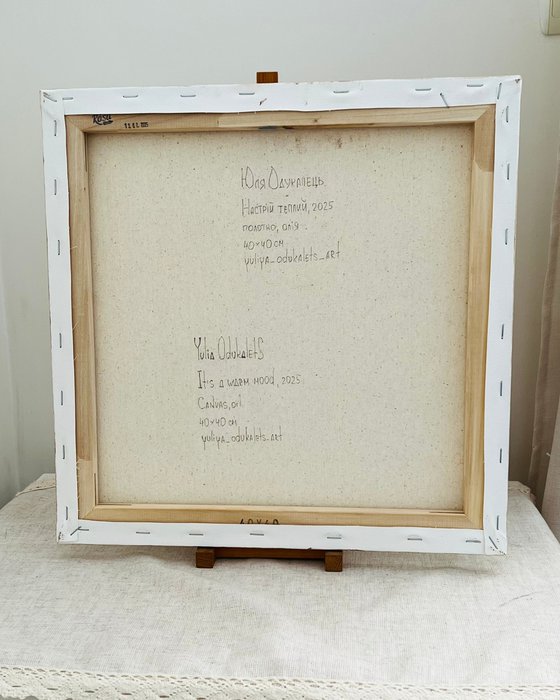 Rosa
Юля Одукалець
Настрій теплий, 2025
полотно, олія
40×40 см
yuliya_odukalets_art
Yulia Odukalets
It's a warm mood, 2025
Canvas, oil
40×40 см
yuliya_odukalets_art
40X40